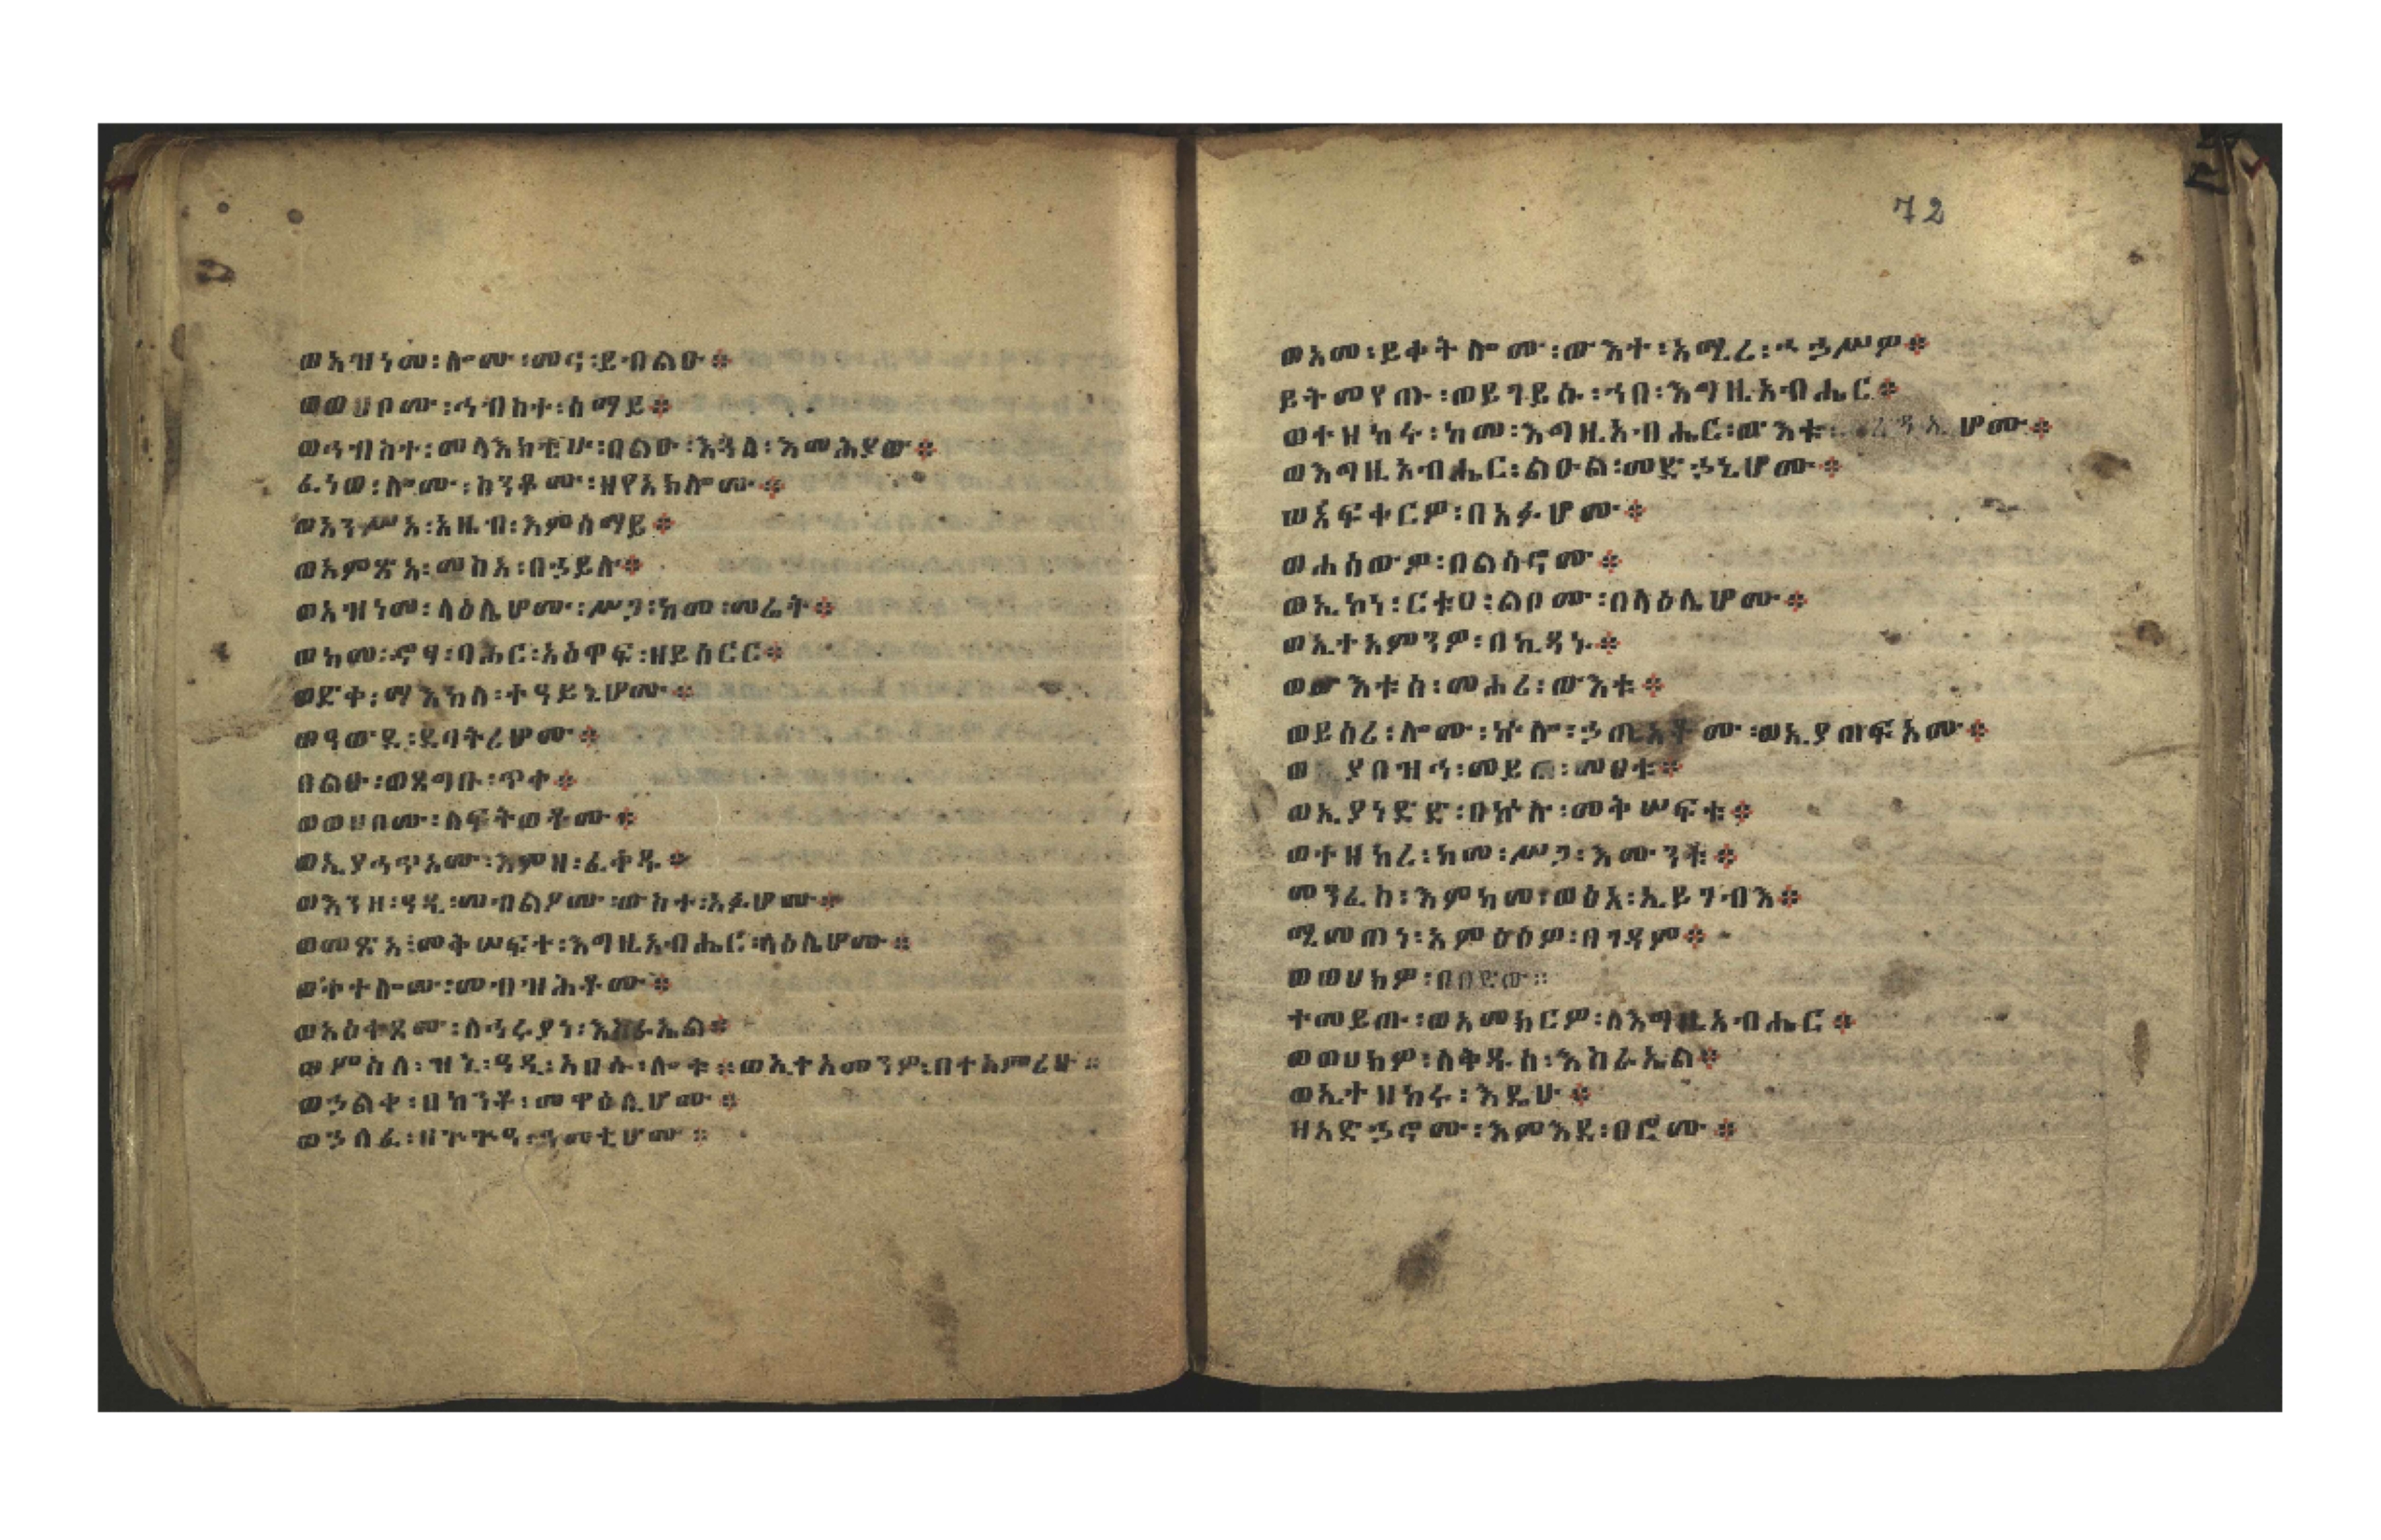 ወአዝነመ፡ሎሙ፡መና፡ይብልዑ፨
ወወሀቦሙ፡ኅብስተ፡ሰማይ፨
ወኅብስተ፡መላእክቲሁ፡በልዑ፡እጓለ፡እመሕያው፨
ፈነወ፡ሎሙ፡ስንቆሙ፡ዘየአክሎሙ፨
ወአንሥአ፡አዜብ፡እምሰማይ፨
ወአምጽአ፡መስአ፡በኃይሉ፨
ወአዝነመ፡ላዕሌሆሙ፡ሥጋ፡ከመ፡መሬት፨
ወከመ፡ኆፃ፡ባሕር፡አዕዋፍ፡ዘይሰርር፨
ወድቀ፡ማእከለ፡ተዓይኒሆሙ፨
ወዓውደ፡ደባትሪሆሙ፨
በልዑ፡ወጸግቡ፡ጥቀ፨
ወወሀቦሙ፡ለፍትወቶሙ፨
ወኢያኅጥአሙ፡እምዘ፡ፈቀዱ፨
ወእንዘ፡ዓዲ፡መብልዖሙ፡ውስተ፡አፉሆሙ፨
ወመጽአ፡መቅሠፍተ፡እግዚአብሔር፡ላዕሌሆሙ፨
ወቀተሎሙ፡መብዝሕቶሙ፨
ወአዕቀጸሙ፡ለኅሩያነ፡እስራኤል፨
ወምስለ፡ዝኒ፡ዓዲ፡አበሱ፡ሎቱ፨ወኢተአመንዎ፡በተአምሪሁ፨
ወኃልቀ፡በከንቶ፡መዋዕሊሆሙ፨
ወኃለፈ፡በጕጕዓ፡ዓመቲሆሙ፨
72
ወአመ፡ይቀትሎሙ፡ውእተ፡አሚረ፡ኀኃሥዎ፨
ይትመየጡ፡ወይገይሱ፡ኀበ፡እግዚአብሔር፨
ወተዘከሩ፡ከመ፡እግዚአብሔር፡ውእቱ፡ረዳኢሆሙ፨
ወእግዚአብሔር፡ልዑል፡መድኃኒሆሙ፨
ወአፍቀርዎ፡በአፉሆሙ፨
ወሐሰውዎ፡በልሳኖሙ፨
ወኢኮነ፡ርቱዐ፡ልቦሙ፡በላዕሌሆሙ፨
ወኢተአምንዎ፡በኪዳኑ፨
ወውእቱሰ፡መሐሪ፡ውእቱ፨
ወይሰሪ፡ሎሙ፡ኵሎ፡ኃጢአቶሙ፡ወኢያጠፍአሙ፨
ወ ያበዝኅ፡መይጠ፡መዐቱ፨
ወኢያነድድ፡በኵሉ፡መቅሠፍቱ፨
ወተዘከረ፡ከመ፡ሥጋ፡እሙንቱ፨
መንፈስ፡እምከመ፡ወፅአ፡ኢይገብእ፨
ሚመጠነ፡አምዕዕዎ፡በገዳም፨
ወወሀክዎ፡በበድው፨
ተመይጡ፡ወአመከርዎ፡ለእግዚአብሔር፨
ወወሀክዎ፡ለቅዱሰ፡እስራኤል፨
ወኢተዘከሩ፡እዴሁ፨
ዘአድኃኖሙ፡እምእደ፡ፀሮሙ፨